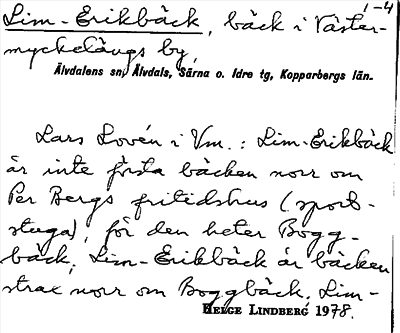 1-4
Lim-Erikbäck, bäck i Väster-
myckelängs by,
Älvdalens sn, Älvdals, Särna o. Idre tg, Kopparbergs län.
Lars Lovén i Vm.: Lim-Erikbäck
är inte första bäcken norr om
Per Bergs fritidshus (sport-
stuga), för den heter Bogg-
bäck, Lim-Erikbäck är bäcken
strax norr om Boggbäck. Lim-
HELGE LINDBERG 1978.